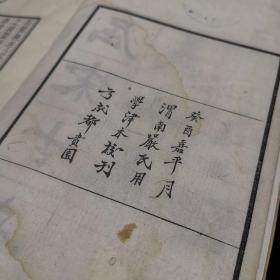 癸酉嘉平月
渭南嚴氏用
學津本校刊
于成都賁園